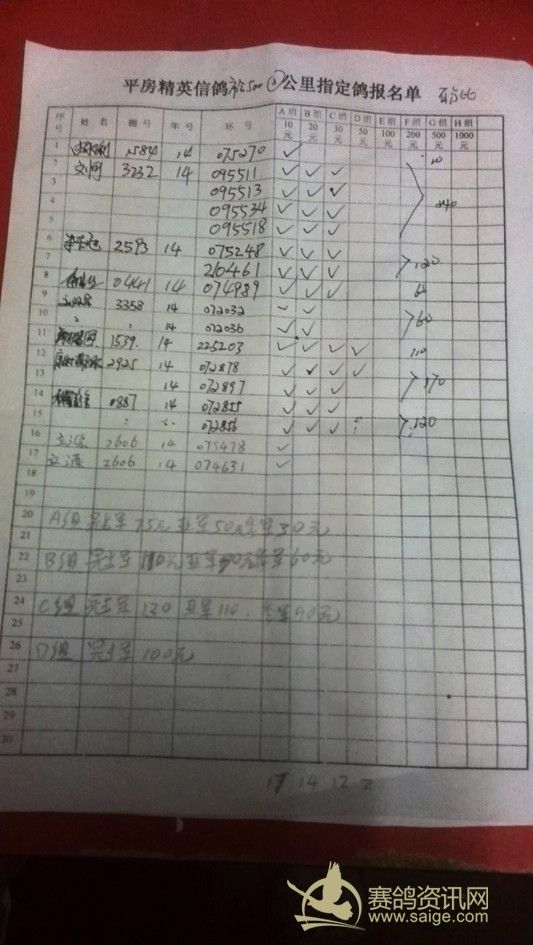 平房精英信鸽 500 ② 公里指定鸽报名单
序号 姓名 棚号 年号 环号 A组 10元 B组 20元 C组 30元 D组 50元 E组 100元 F组 200元 G组 500元 H组 1000元
1 1584 14 075270 ✓ 10
2 刘 3232 14 095511 ✓ ✓ ✓
3 095513 ✓ ✓ ✓ 240
4 095534 ✓ ✓ ✓
5 095518 ✓ ✓ ✓
6 2593 14 075248 ✓ ✓ ✓ 120
7 210461 ✓ ✓ ✓
8 0441 14 074989 ✓ ✓ ✓ 60
9 3358 14 072032 ✓ ✓ 60
10 14 072036 ✓ ✓
11 1539 14 225203 ✓ ✓ ✓ ✓ 110
12 2925 14 072878 ✓ ✓ ✓ ✓ 170
13 14 072897 ✓ ✓ ✓
14 0887 14 072855 ✓ ✓ ✓ 120
15 072856 ✓ ✓ ✓
16 2606 14 075478 ✓
17 2606 14 074631 ✓
18
19
20 A组 冠军 75元 亚军50元季军30元
21
22 B组 冠军 110元 亚军 季军60元
23
24 C组 冠军 130 亚军 110 季军90元
25
26 D组 冠军 100元
27
28
29
30
17 14 12 2
赛鸽资讯网
www.saige.com